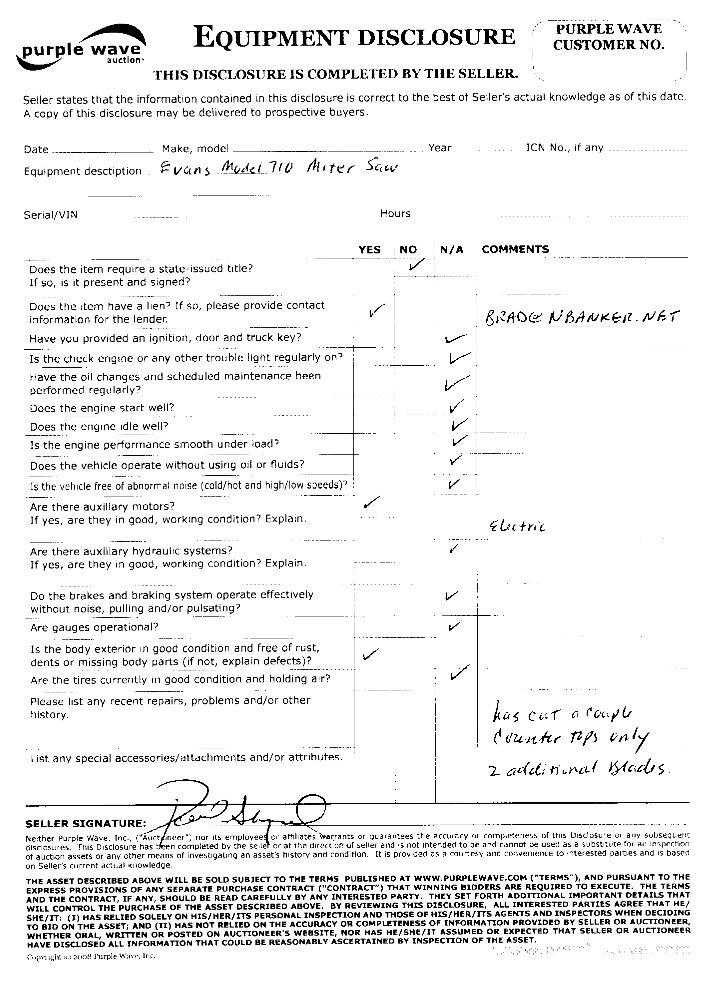 purple wave
auction
EQUIPMENT DISCLOSURE
PURPLE WAVE
CUSTOMER NO.
THIS DISCLOSURE IS COMPLETED BY THE SELLER.
Seller states that the information contained in this disclosure is correct to the best of Seller's actual knowledge as of this date.
A copy of this disclosure may be delivered to prospective buyers.
Date Make, model Year ICN No., if any
Equipment desctiption Evans Model 710 Miter Saw
Serial/VIN Hours
YES NO N/A COMMENTS
Does the item require a state-issued title? ✓
If so, is it present and signed?
Does the item have a lien? If so, please provide contact ✓
information for the lender. BRAD@NBANKER.NET
Have you provided an ignition, door and truck key? ✓
Is the check engine or any other trouble light regularly on? ✓
Have the oil changes and scheduled maintenance been ✓
performed regularly?
Does the engine start well? ✓
Does the engine idle well? ✓
Is the engine performance smooth under load? ✓
Does the vehicle operate without using oil or fluids? ✓
Is the vehicle free of abnormal noise (cold/hot and high/low speeds)? ✓
Are there auxiliary motors? ✓
If yes, are they in good, working condition? Explain. Electric
Are there auxiliary hydraulic systems? ✓
If yes, are they in good, working condition? Explain.
Do the brakes and braking system operate effectively ✓
without noise, pulling and/or pulsating?
Are gauges operational? ✓
Is the body exterior in good condition and free of rust, ✓
dents or missing body parts (if not, explain defects)?
Are the tires currently in good condition and holding air? ✓
Please list any recent repairs, problems and/or other has cut a couple
history. Counter tops only
List any special accessories/attachments and/or attributes. 2 additional Blades.
SELLER SIGNATURE:
Neither Purple Wave, Inc., ("Auctioneer") nor its employees or affiliates warrants or guarantees the accuracy or completeness of this Disclosure or any subsequent
disclosures. This Disclosure has been completed by the seller or at the direction of seller and is not intended to be and cannot be used as a substitute for an inspection
of auction assets or any other means of investigating an asset's history and condition. It is provided as a courtesy and convenience to interested parties and is based
on Seller's current actual knowledge.
THE ASSET DESCRIBED ABOVE WILL BE SOLD SUBJECT TO THE TERMS PUBLISHED AT WWW.PURPLEWAVE.COM ("TERMS"), AND PURSUANT TO THE
EXPRESS PROVISIONS OF ANY SEPARATE PURCHASE CONTRACT ("CONTRACT") THAT WINNING BIDDERS ARE REQUIRED TO EXECUTE. THE TERMS
AND THE CONTRACT, IF ANY, SHOULD BE READ CAREFULLY BY ANY INTERESTED PARTY. THEY SET FORTH ADDITIONAL IMPORTANT DETAILS THAT
WILL CONTROL THE PURCHASE OF THE ASSET DESCRIBED ABOVE. BY REVIEWING THIS DISCLOSURE, ALL INTERESTED PARTIES AGREE THAT HE/
SHE/IT: (I) HAS RELIED SOLELY ON HIS/HER/ITS PERSONAL INSPECTION AND THOSE OF HIS/HER/ITS AGENTS AND INSPECTORS WHEN DECIDING
TO BID ON THE ASSET; AND (II) HAS NOT RELIED ON THE ACCURACY OR COMPLETENESS OF INFORMATION PROVIDED BY SELLER OR AUCTIONEER,
WHETHER ORAL, WRITTEN OR POSTED ON AUCTIONEER'S WEBSITE, NOR HAS HE/SHE/IT ASSUMED OR EXPECTED THAT SELLER OR AUCTIONEER
HAVE DISCLOSED ALL INFORMATION THAT COULD BE REASONABLY ASCERTAINED BY INSPECTION OF THE ASSET.
Copyright (c) 2008 Purple Wave, Inc.